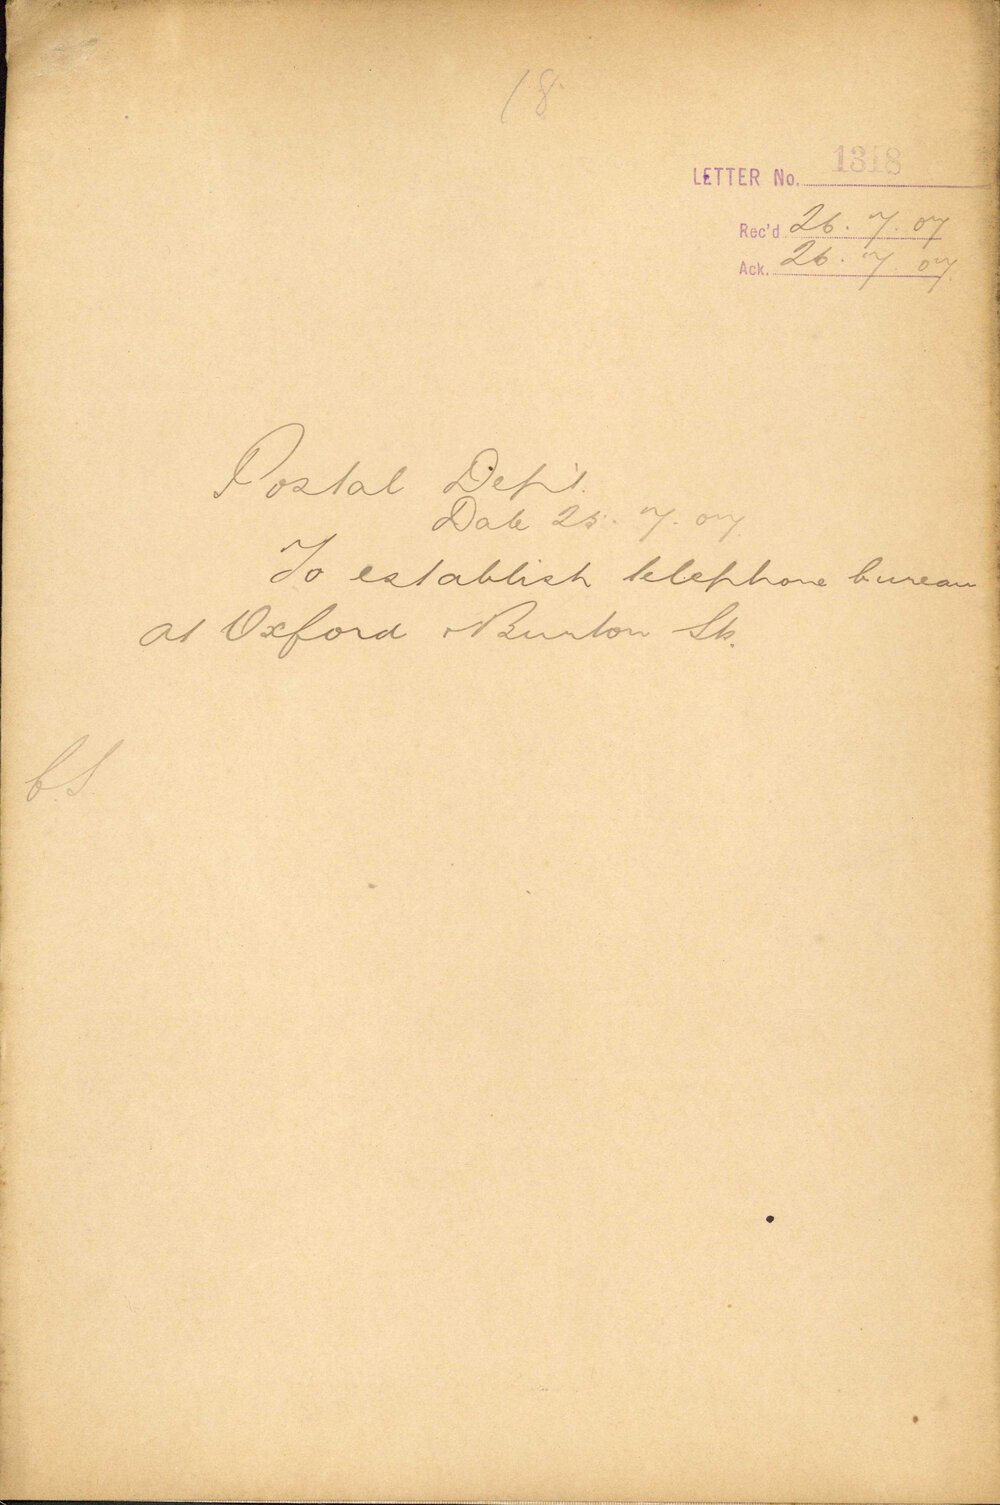 18
LETTER No. 1318
Rec'd 26. 7. 07
Ack. 26. 7. 07
Postal Dep't.
Date 25. 7. 07
To establish telephone bureau
at Oxford & Burton Sts.
C.S.